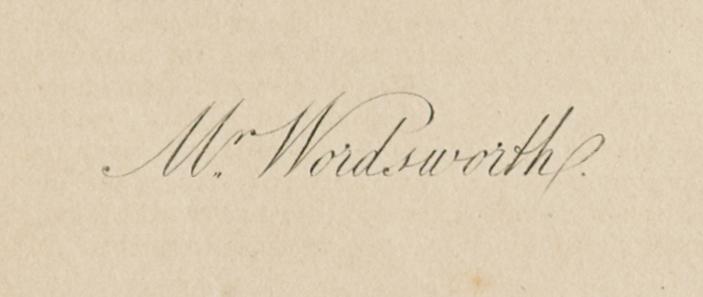 Mr. Wordsworth.